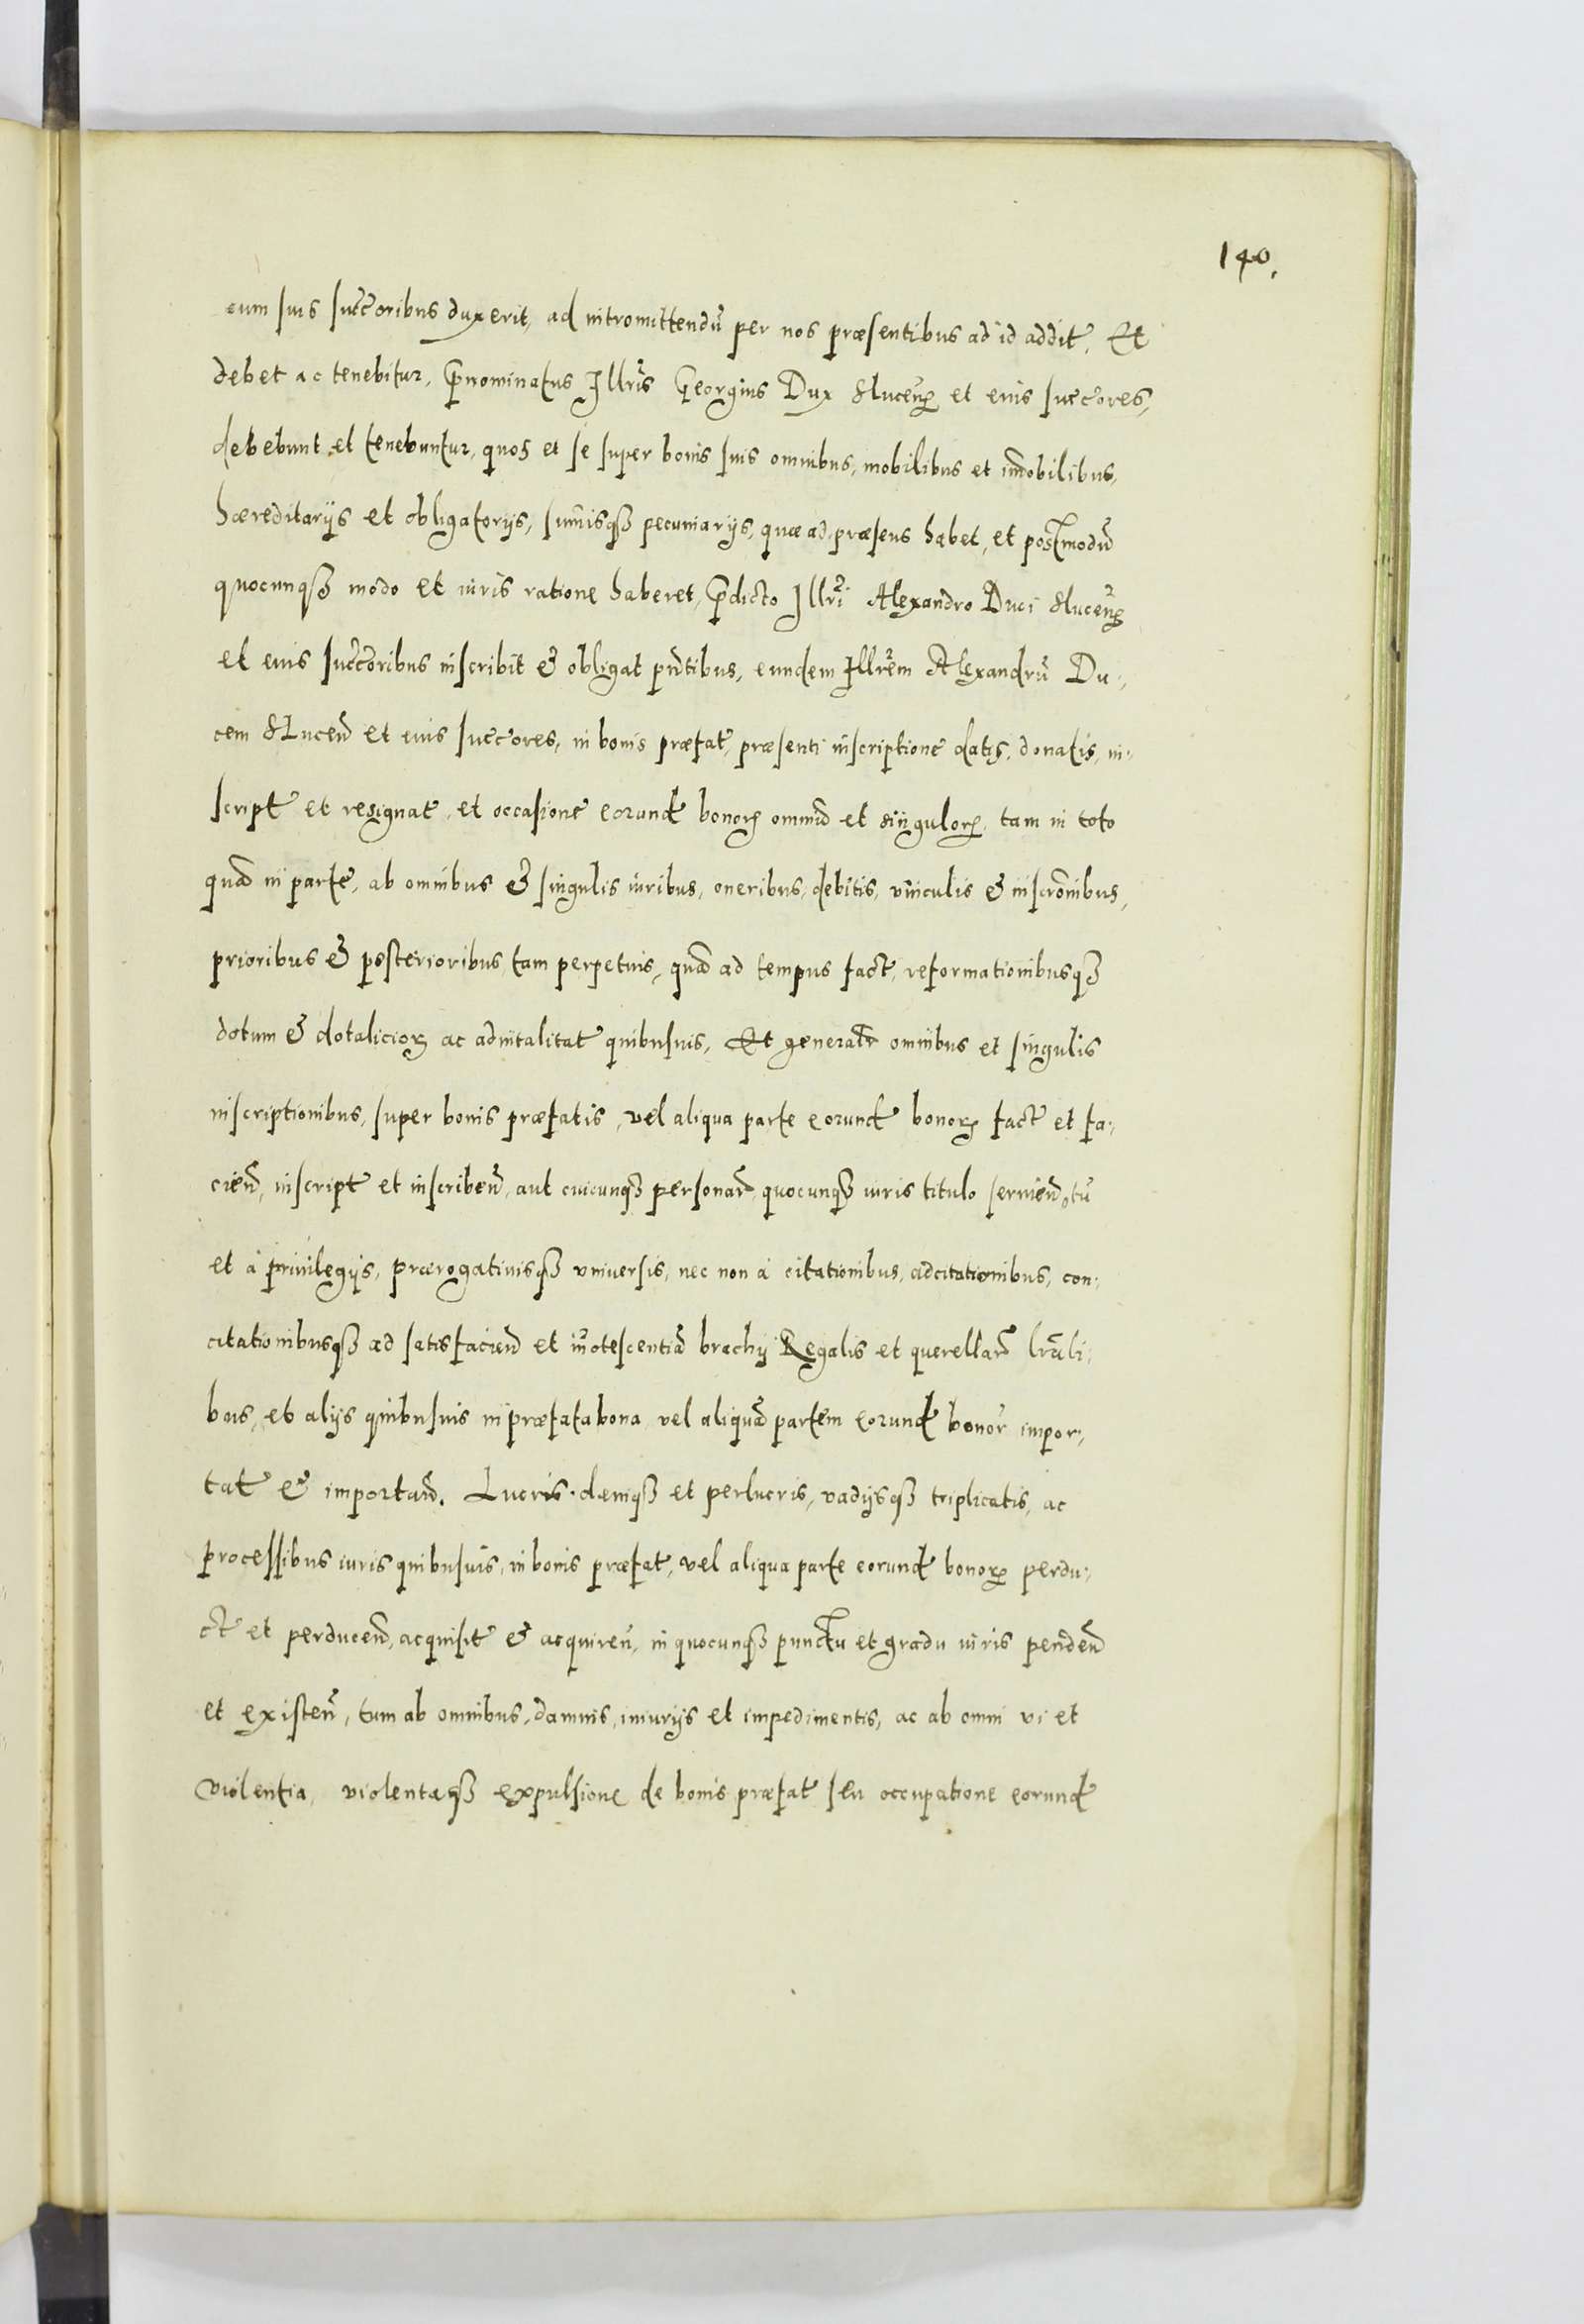 140.
cum suis succ̃oribus duxerit, ad intromittendũ per nos præsentibus ad id addit̃. Et
debet ac tenebitur, p̃nominatus Illr̃is Georgius Dux Slucen̄ et eius succ̃ores,
debebunt et tenebuntur, quos et se super bonis suis omnibus, mobilibus et im̃obilibus,
hæreditarijs et obligatorijs, sum̃isq₃ pecuniarijs, quæ ad præsens habet, et postmodũ
quocunq₃ modo et iuris ratione haberet, p̃dicto Illr̃i Alexandro Duci Slucen̄
et eius succ̃oribus inscribit & obligat pn̄tibus, eundem Illr̃em Alexandrũ Du-
cem Slucen̄ et eius succ̃ores, in bonis præfat̃, præsenti inscriptione datis, donatis, in-
script̃ et resignat̃, et occasione eorund̃ bonorꝝ omniũ et singulorꝝ, tam in toto
quã in parte, ab omnibus & singulis iuribus, oneribus, debitis, vinculis & inscrõnibus,
prioribus & posterioribus, tam perpetuis, quã ad tempus fact̃, reformationibusq₃
dotum & dotaliciorꝝ ac aduitalitat̃ quibusuis, Et generalr̃ omnibus et singulis
inscriptionibus, super bonis præfatis, vel aliqua parte eorund̃ bonorꝝ fact̃ et fa-
cien̄, inscript̃ et inscriben̄, aut cuicunq₃ personar̃, quocunq₃ iuris titulo seruien̄, tũ
et à priuilegijs, prærogatiuisq₃ vniuersis, nec non à citationibus, adcitationibus, con-
citationibusq₃ ad satisfacien̄ et in̄otescentiã brachij Regalis et querellar̃ lr̃ali-
bus, et alijs quibusuis in præfata bona vel aliquã partem eorund̃ bonor̃ impor-
tat̃ & importan̄. Lucris dæniq₃ et perlucris, vadijsq₃ triplicatis, ac
processibus iuris quibusuis, in bonis præfat̃, vel aliqua parte eorund̃ bonorꝝ perdu-
ct̃ et perducen̄, acquisit̃ & acquiren̄, in quocunq₃ punctu et gradu iuris penden̄
et existen̄, tum ab omnibus, damnis, iniurijs et impedimentis, ac ab omni vi et
violentia, violentaq₃ expulsione de bonis præfat̃ seu occupatione eorund̃